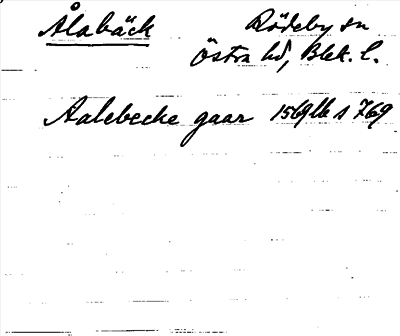 Ålabäck Rödeby sn
Östra hd, Blek. l.
Aalebecke gaar 1569 Lb s 769